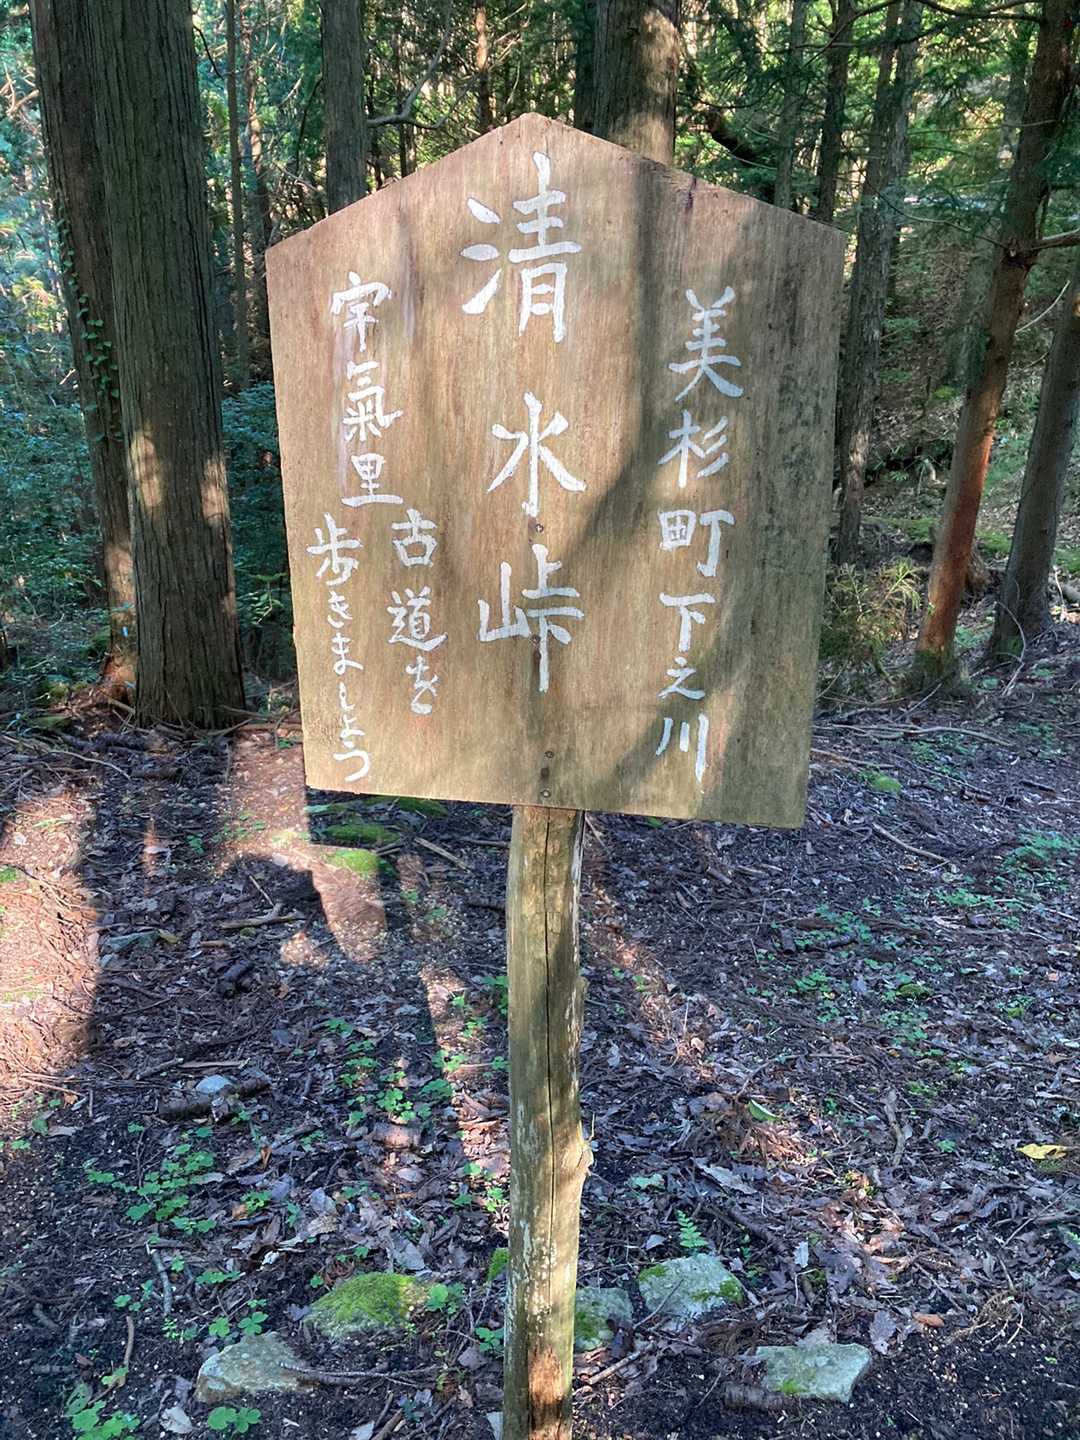 美杉町下之川
清水峠
宇氣里
古道を
歩きましょう